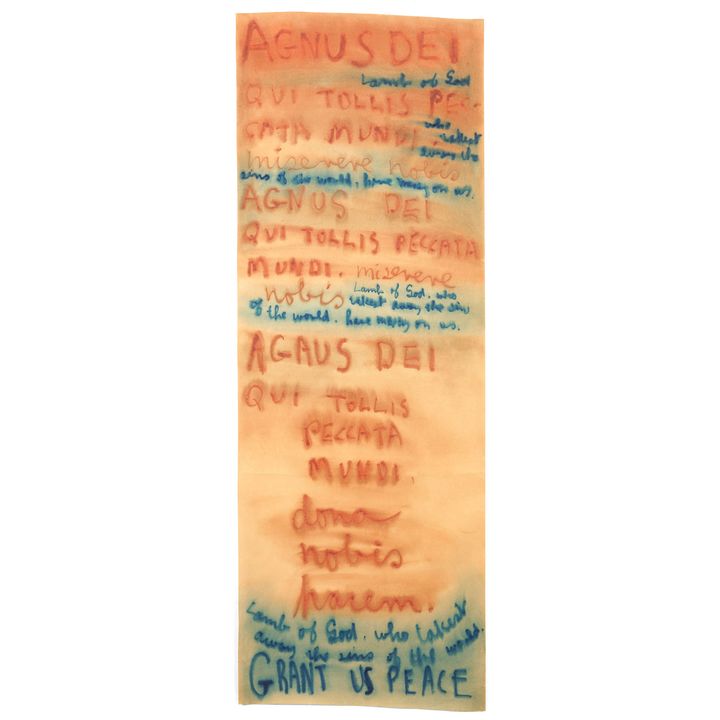 AGNUS DEI
Lamb of God
QUI TOLLIS PEC-
who
CATA MUNDI.
takest
away the
miserere nobis
sins of the world, have mercy on us.
AGNUS DEI
QUI TOLLIS PECCATA
MUNDI. miserere
nobis Lamb of God. who
takest away the sins
of the world. have mercy on us.
AGAUS DEI
QUI TOLLIS
PECCATA
MUNDI.
dona
nobis
pacem.
Lamb of God. who takest
away the sins of the world.
GRANT US PEACE